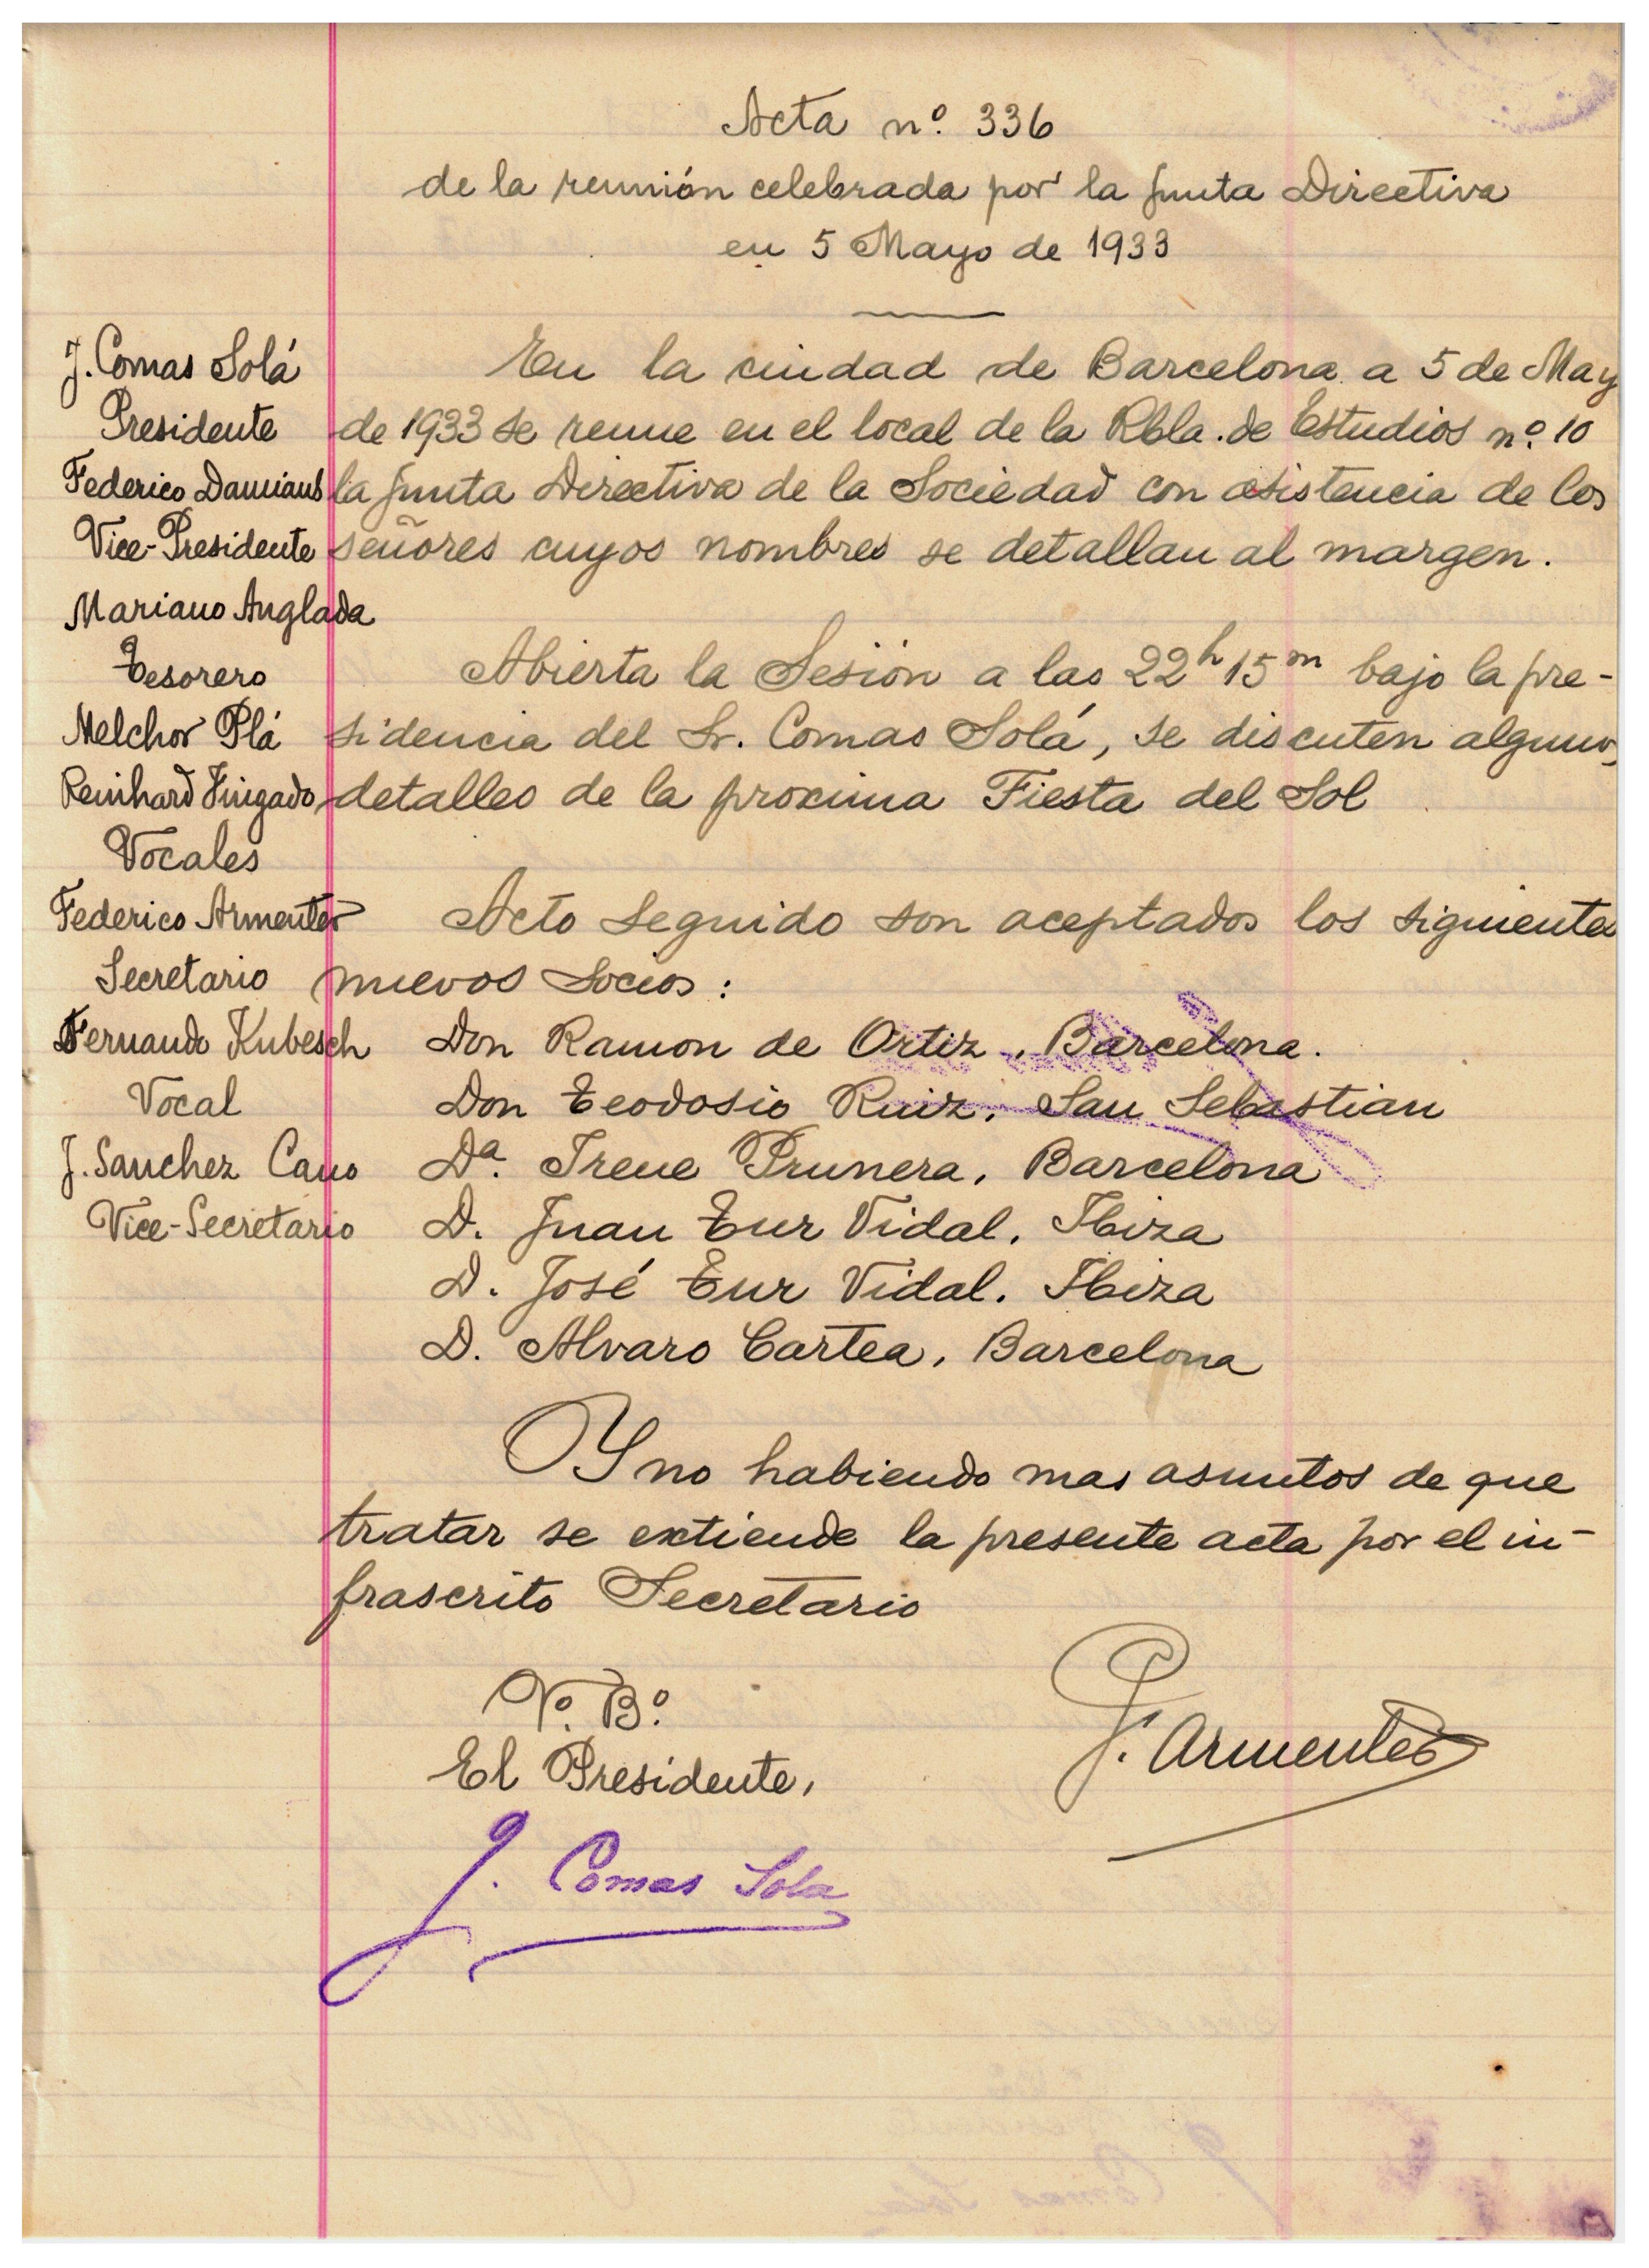 Acta nº. 336
de la reunión celebrada por la Junta Directiva
en 5 Mayo de 1933
J. Comas Solá
Presidente
Federico Damians
Vice-Presidente
Mariano Anglada
Tesorero
Melchor Plá
Reinhard
Vocales
Federico Armenter
Secretario
Fernando Kubesch
Vocal
J. Sanchez Cano
Vice-Secretario
En la ciudad de Barcelona a 5 de May
de 1933 se reune en el local de la Rbla. de Estudios nº. 10
la Junta Directiva de la Sociedad con asistencia de los
señores cuyos nombres se detallan al margen.
Abierta la Sesión a las 22h 15m bajo la pre-
sidencia del Sr. Comas Solá, se discuten algunos
detalles de la proxima Fiesta del Sol
Acto seguido son aceptados los siguientes
nuevos socios:
Don Ramon de Ortiz, Barcelona.
Don Teodosio Ruiz, San Sebastian
Dª. Irene Prunera, Barcelona
D. Juan Tur Vidal. Ibiza
D. José Tur Vidal. Ibiza
D. Alvaro Cartea, Barcelona
Y no habiendo mas asuntos de que
tratar se extiende la presente acta por el in-
frascrito Secretario
Vº. Bº.
El Presidente,
F. Armenter
J. Comas Sola